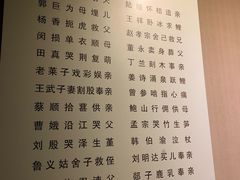 郭巨为母埋儿
杨香扼虎救父
闵损单衣顺母
田真哭荆复萌
老莱子戏彩娱亲
王武子妻割股奉亲
蔡顺拾葚供亲
曹娥沿江哭父
刘殷哭泽生堇
鲁义姑舍子救侄
陆绩怀桔遗亲
王祥卧冰求鲤
赵孝宗舍己救兄
董永卖身葬父
丁兰刻木事亲
姜诗涌泉跃鲤
曾参啮指心痛
鲍山行佣供母
孟宗哭竹生笋
韩伯瑜泣杖
刘明达买儿奉亲
郯子鹿乳奉亲